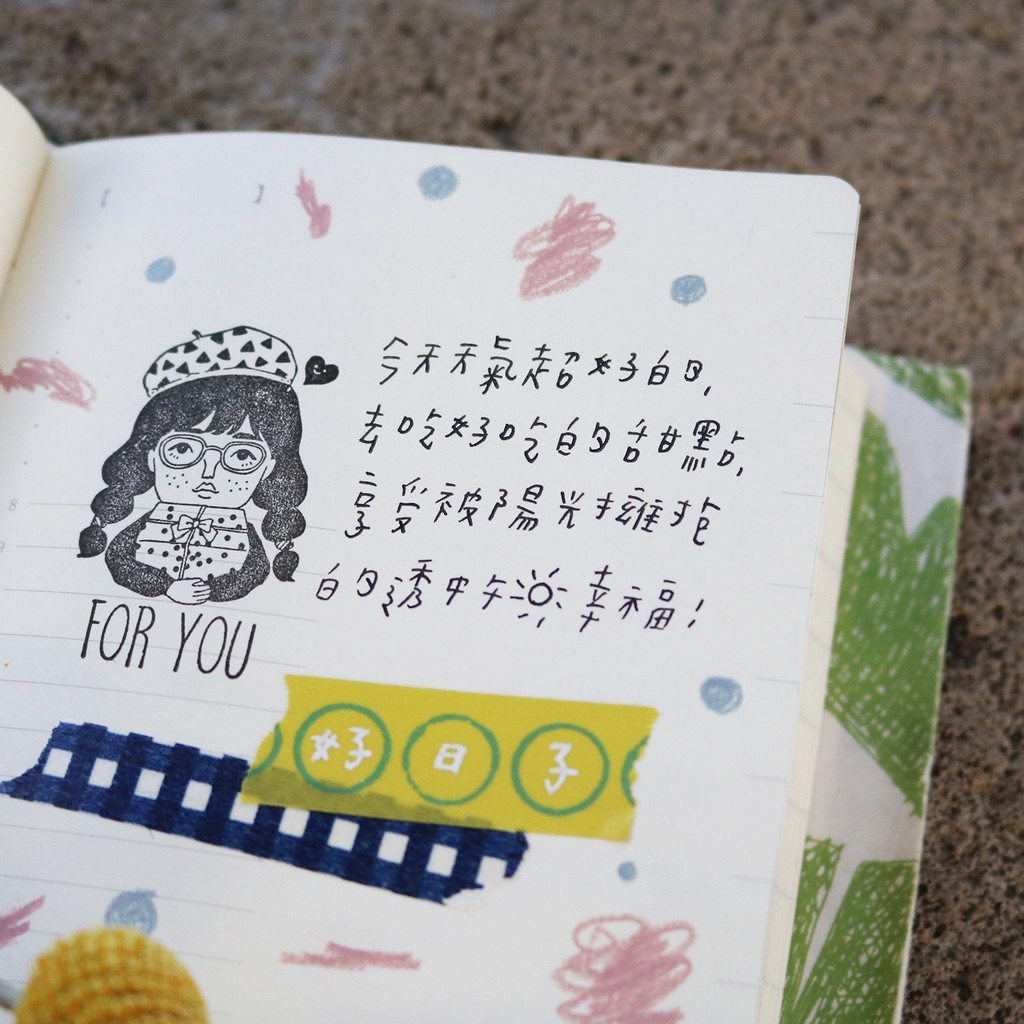 今天天氣超好的,
去吃好吃的甜點,
享受被陽光擁抱
的透中午☀幸福!
FOR YOU
好日子
8
9